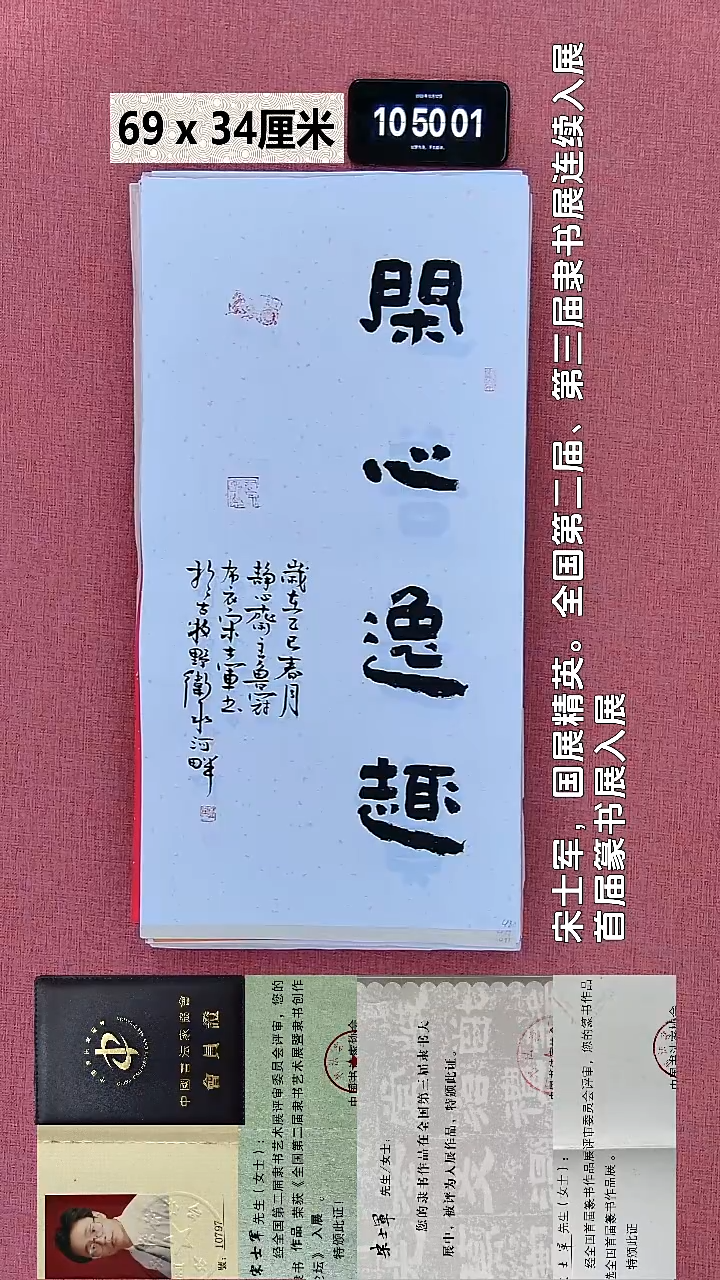 69 x 34厘米
10 50 01
閑心逸趣
歲在乙巳春月
静心齋主魯冠
布衣宋士軍书
於古牧野衛水河畔
宋士军，国展精英。全国第二届、第三届隶书展连续入展
首届篆书展入展
中國書法家協會
會員證
10797
宋士军 先生（女士）：
经全国第二届隶书艺术展评审委员会评审，您的
隶书 作品 荣获《全国第二届隶书艺术展暨隶书创作
论坛》 入展 。
特颁此证！
宋士軍 先生/女士：
您的隶书作品在全国第三届隶书大
展中，被评为入展作品，特颁此证。
先生（女士）：
经全国首届篆书作品展评审委员会评审，您的篆书作品
选全国首届篆书作品展。
特颁此证